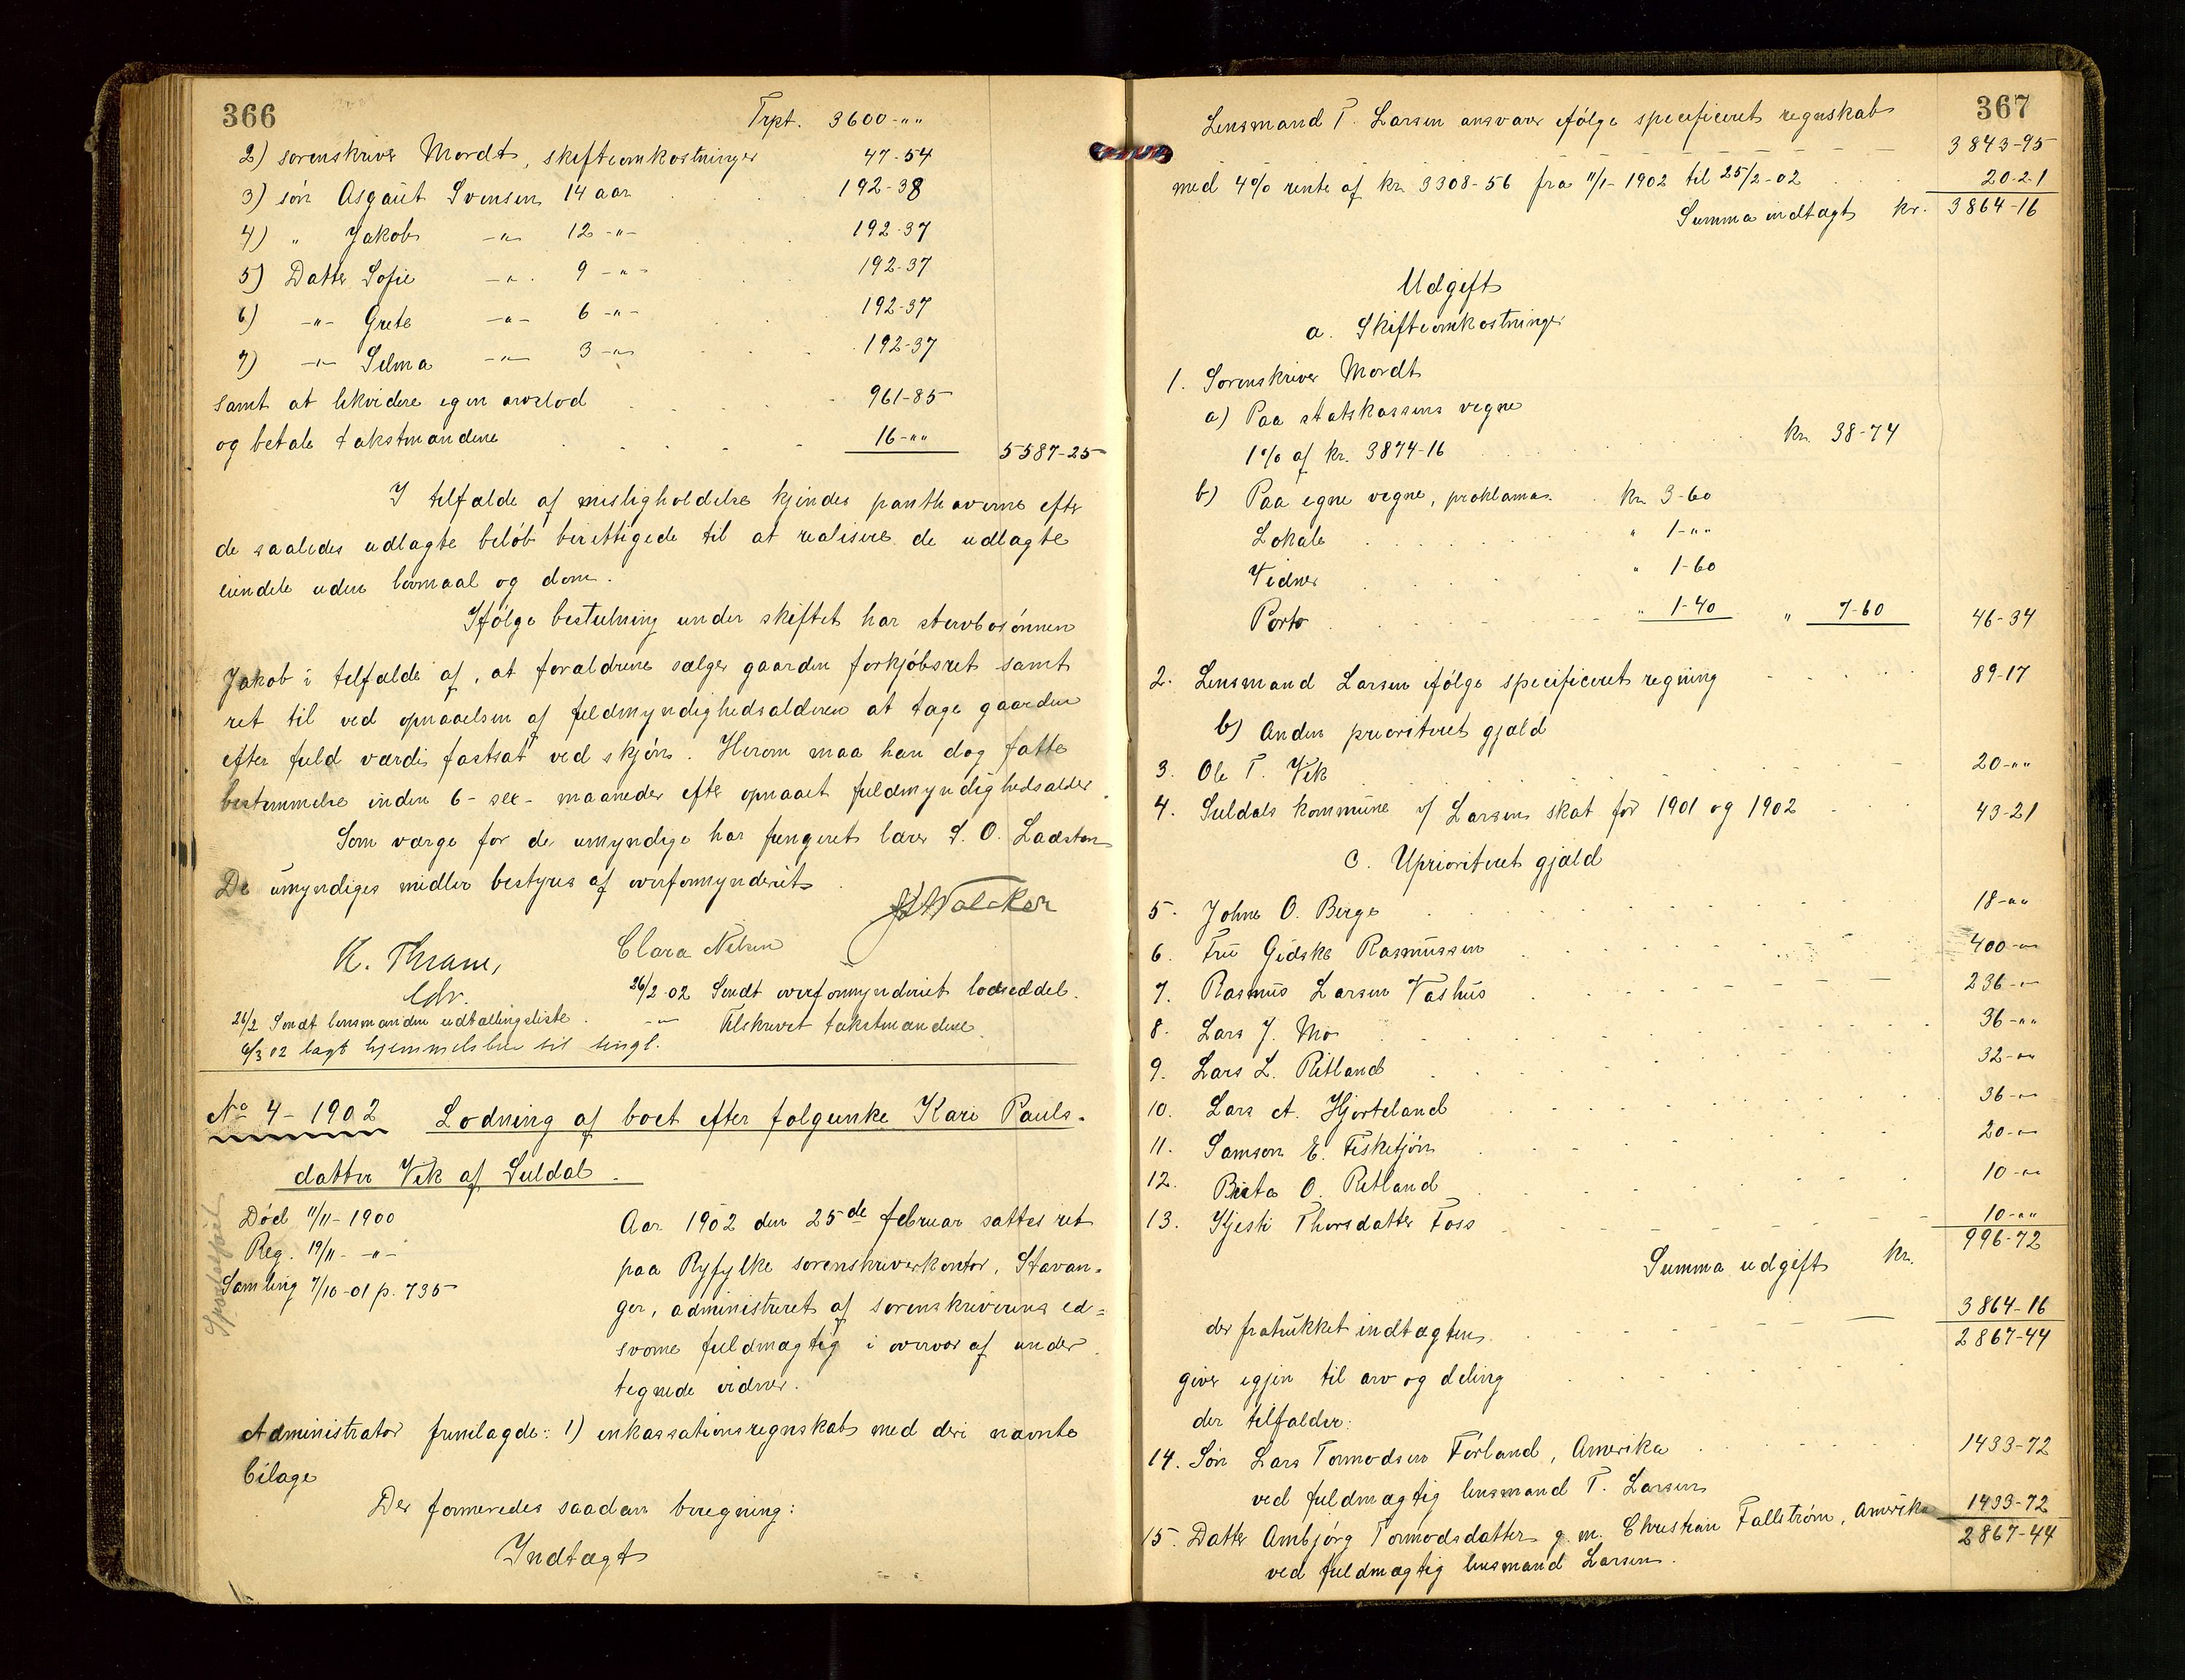 366
Trpt. 3600-""
2) sorenskriver Mordt, skifteomkostninger 47-54
3) søn Asgaut Svensen 14 aar 192-38
4) " Jakob -"- 12 -"- 192-37
5) Datter Sofie -"- 9 -"- 192-37
6) -"- Grete -"- 6 -"- 192-37
7) -"- Selma -"- 3 -"- 192-37
samt at likvidere egen arvelod 961-85
og betale takstmændene 16-"" 5587-25
I tilfælde af misligholdelse kjendes panthaverne efter
de saaledes udlagte beløb berettigede til at realisere de udlagte
eiendele uden lovmaal og dom.
Ifølge bestemning under skiftet har stervbosønnen
Jakob i tilfælde af, at forældrene sælger gaarden forkjøbsret samt
ret til ved opnaaelsen af fuldmyndighedsalderen at tage gaarden
efter fuld værdi fastsat ved skjøn. Herom maa han dog fatte
bestemmelse inden 6 - sex - maaneder efter opnaaet fuldmyndighedsalder.
Som værge for de umyndige har fungeret lærer S. O. Ladsten
De umyndiges midler bestyres af overformynderiet.
Walcker
K. Thrane, Clara Nelsen
edv.
26/2 02 Sendt overformynderiet lodseddel.
26/2 Sendt lensmanden udtællingsliste. -"- Tilskrevet takstmændene.
6/3 02 lagt hjemmelsbrev til tingl.
No 4 - 1902 Lodning af boet efter folgeenke Kari Pauls-
datter Vik af Suldal.
Død 11/11 - 1900
Reg. 19/11 - -"-
Samling 7/10 -01 p. 735
Aar 1902 den 25de februar sattes ret
paa Ryfylke sorenskriverkontor, Stavan-
ger, administreret af sorenskriverens ed-
svorne fuldmægtig i overvær af under-
tegnede vidner.
Administrator fremlagde: 1) inkassationsregnskab med deri nævnte
bilage
Der formeredes saadan beregning:
Indtægt
367
Lensmand T. Larsen ansvarer ifølge specificeret regnskab
3843-95
med 4% rente af kr. 3308-56 fra 11/1 - 1902 til 25/2 -02 20-21
Summa indtægt kr. 3864-16
Udgift
a. Skifteomkostninger
1. Sorenskriver Mordt
a) Paa statskassens vegne
1% af kr. 3874-16 kr. 38-74
b) Paa egne vegne, proklama kr. 3-60
Lokale " 1-""
Vidner " 1-60
Porto " 1-40 " 7-60 46-34
2. Lensmand Larsen ifølge specificeret regning 89-17
b) Anden prioriteret gjæld
3. Ole T. Vik 20-""
4. Suldals kommune v/ Larsen skat for 1901 og 1902 43-21
c. Uprioriteret gjæld
5. Johne O. Berge 18-""
6. Fru Gidske Rasmussen 400-""
7. Rasmus Larsen Vashus 236-""
8. Lars J. Mo 36-""
9. Lars L. Ritland 32-""
10. Lars A. Hjorteland 36-""
11. Samson E. Fisketjøn 20-""
12. Birte O. Ritland 10-""
13. Kjesti Thorsdatter Foss 10-""
Summa udgift kr. 996-72
der fratrukket indtægten 3864-16
giver igjen til arv og deling 2867-44
der tilfalder:
14. Søn Lars Tormodsen Førland, Amerika 1433-72
ved fuldmægtig lensmand T. Larsen
15. Datter Ambjørg Tormodsdatter g. m. Christian Fallstrøm, Amerika 1433-72
ved fuldmægtig lensmand Larsen. 2867-44